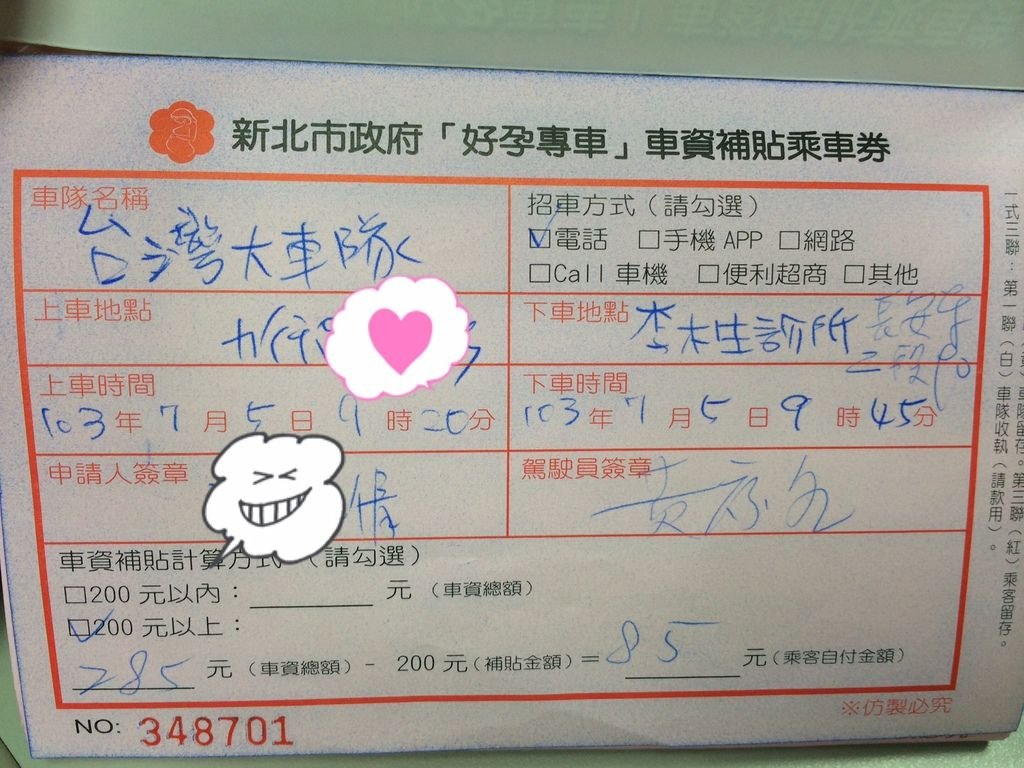 新北市政府「好孕專車」車資補貼乘車券
車隊名稱
台灣大車隊
招車方式（請勾選）
☑電話 □手機 APP □網路
□Call 車機 □便利超商 □其他
上車地點
下車地點 李木生診所 長安東
二段80
上車時間
103年7月5日9時20分
下車時間
103年7月5日9時45分
申請人簽章
駕駛員簽章
車資補貼計算方式（請勾選）
□200 元以內：______元（車資總額）
☑200 元以上：
285元（車資總額）- 200 元（補貼金額）= 85元（乘客自付金額）
※仿製必究
NO: 348701
一式三聯：第一聯（白）
車隊收執（請款用）。
第三聯（紅）乘客留存。